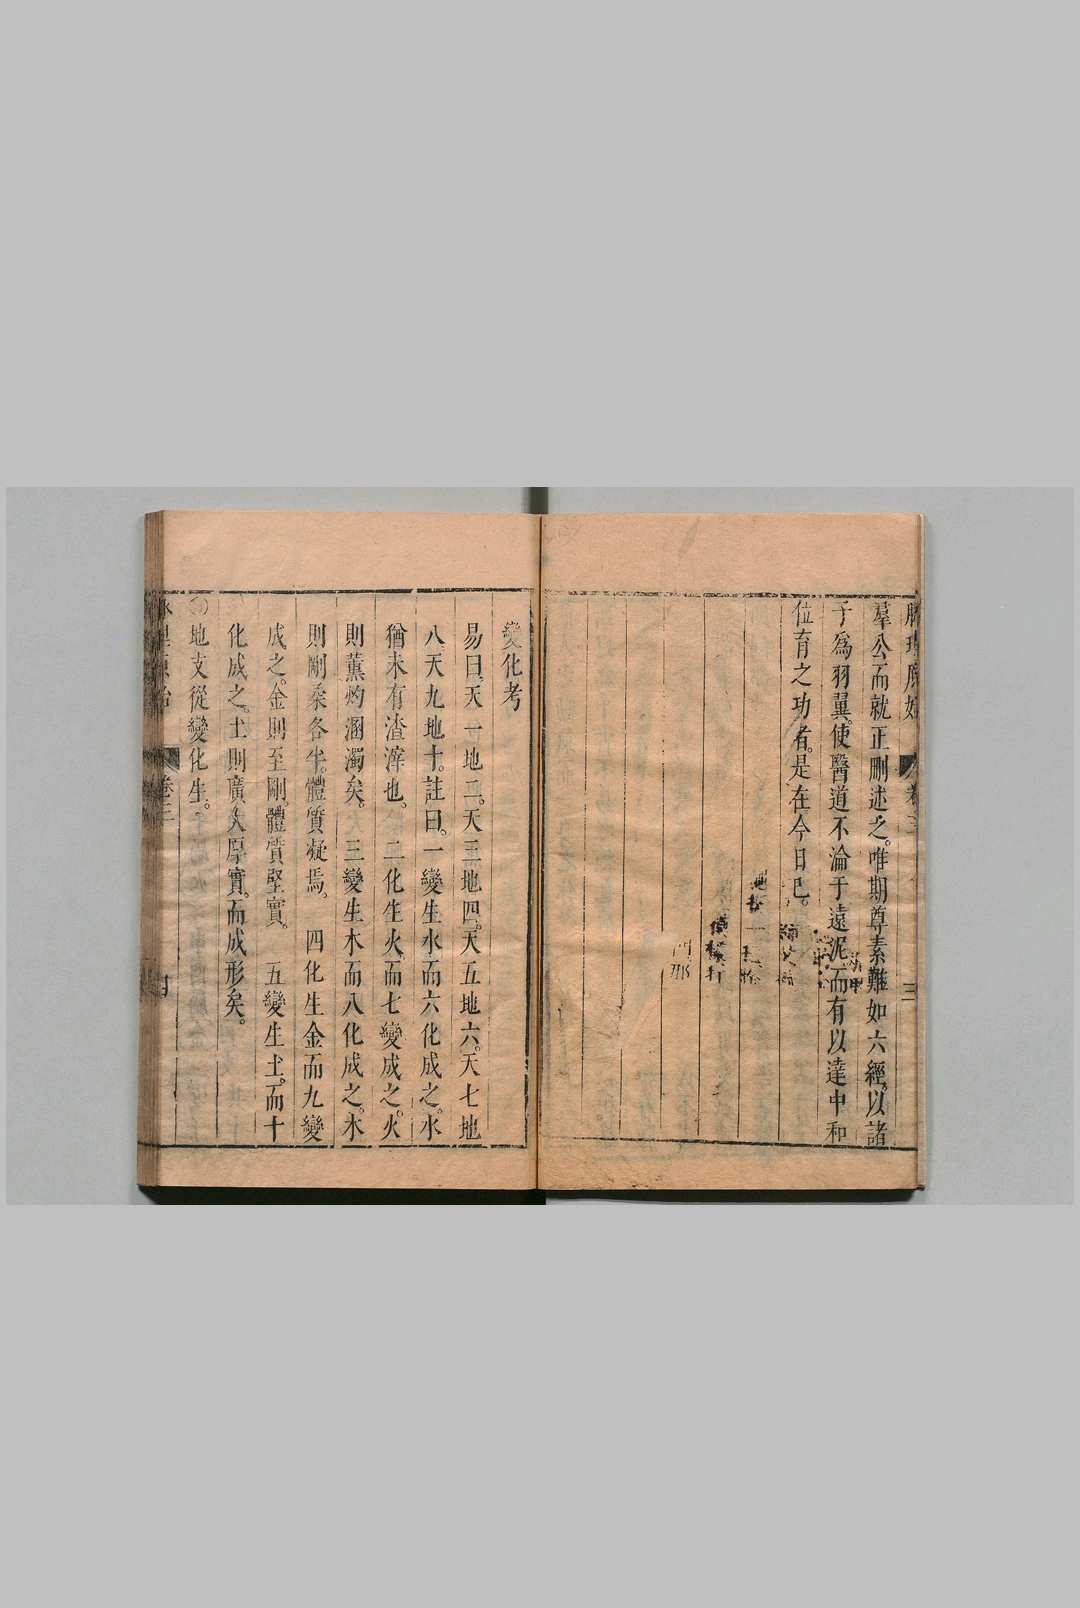 羣公而就正刪述之。唯期尊素難如六經。以諸
子爲羽翼。使醫道不淪于遠泥而有以達中和
位育之功者。是在今日已。
三
變化考
易曰。天一地二。天三地四。天五地六。天七地
八天九地十。註曰。一變生水而六化成之。水
猶未有渣滓也。二化生火而七變成之。火
則薰灼溷濁矣。三變生木而八化成之。木
則剛柔各半。體質凝焉。四化生金而九變
成之。金則至剛。體質堅實。五變生土。而十
化成之。土則廣大厚實。而成形矣。
地支從變化生。
卷三